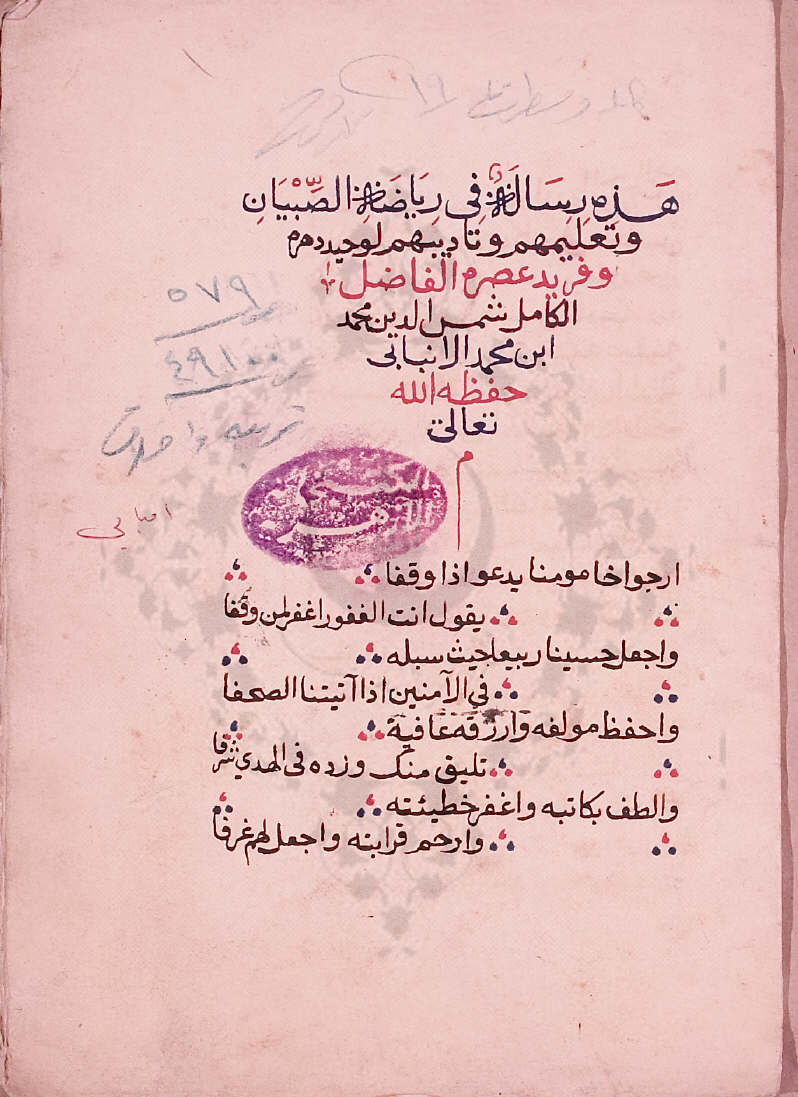 هَذِهِ رِسَالَةٌ فِي رِيَاضَةِ الصِّبْيَانِ
وتعليمهم وتاديبهم لوحيد دهره
وفريد عصره الفاضل
الكامل شمس الدين محمد
ابن محمد الانبابى
حفظه الله
تعالى
م
٥٧٩
٤٩١٠٠
انبابي
ارجوا خا مومنا يدعو اذا وقفا
يقول انت الغفور اغفر لمن وقفا
واجعل حسينا ربيعا حيث سبله
في الآمنين اذا آتيتنا الصحفا
واحفظ مولفه وارزقه عافية
تليق منك وزده فى الهدي شرفا
والطف بكاتبه واغفر خطيئته
وارحم قرابته واجعل لهم غرفا